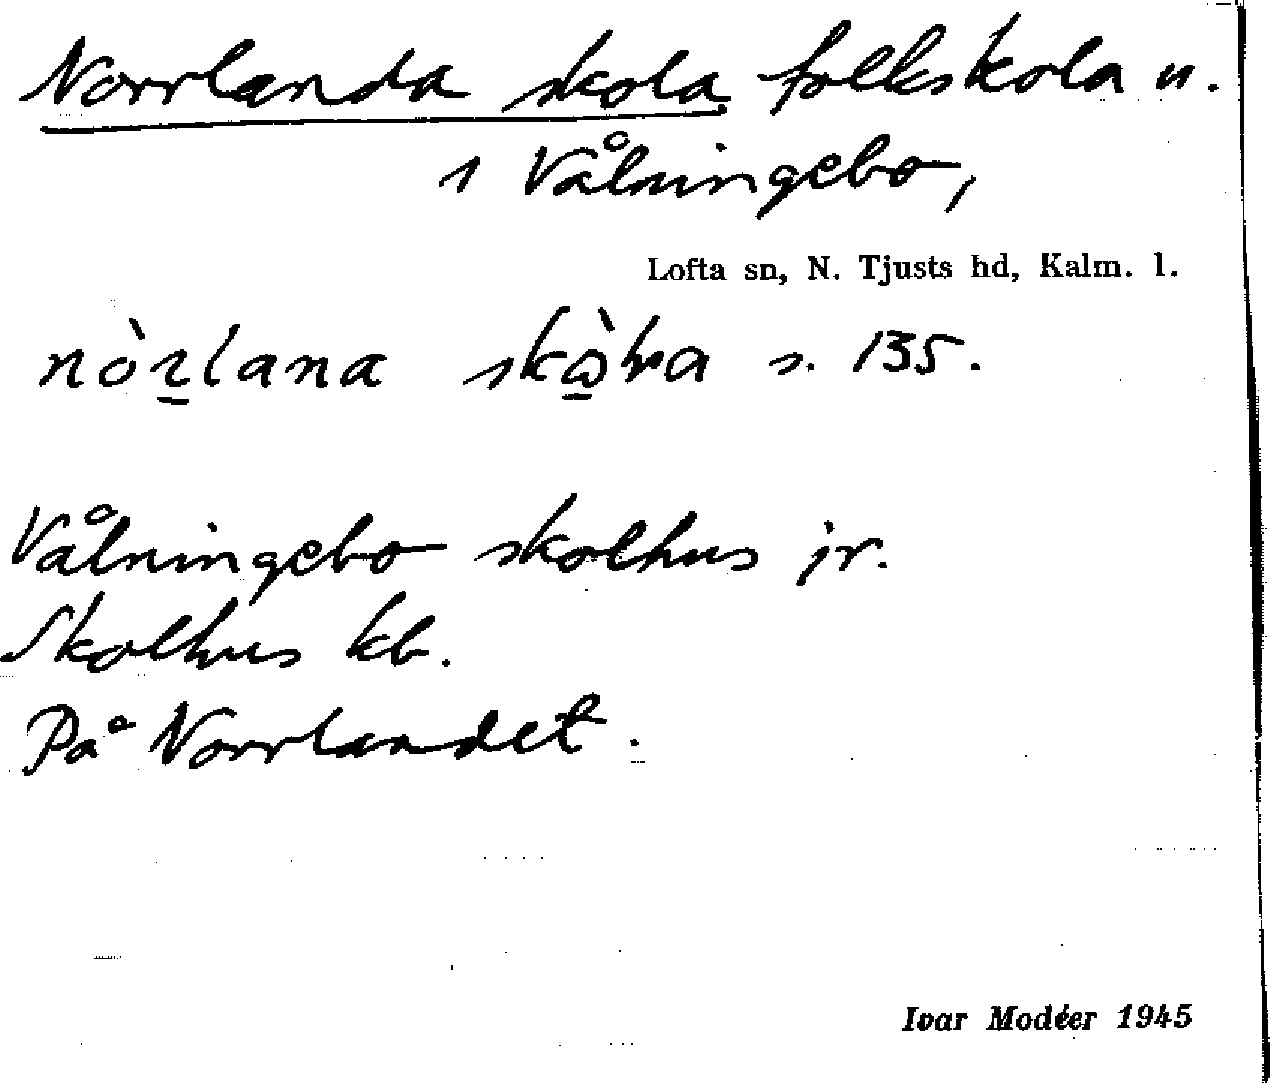 Norrlanda skola folkskola n.
1 Vålningebo,
Lofta sn, N. Tjusts hd, Kalm. l.
nòr̲lana s. 135.
Vålningebo skolhus jr.
Skolhus kb.
På Norrlandet.
Ivar Modéer 1945